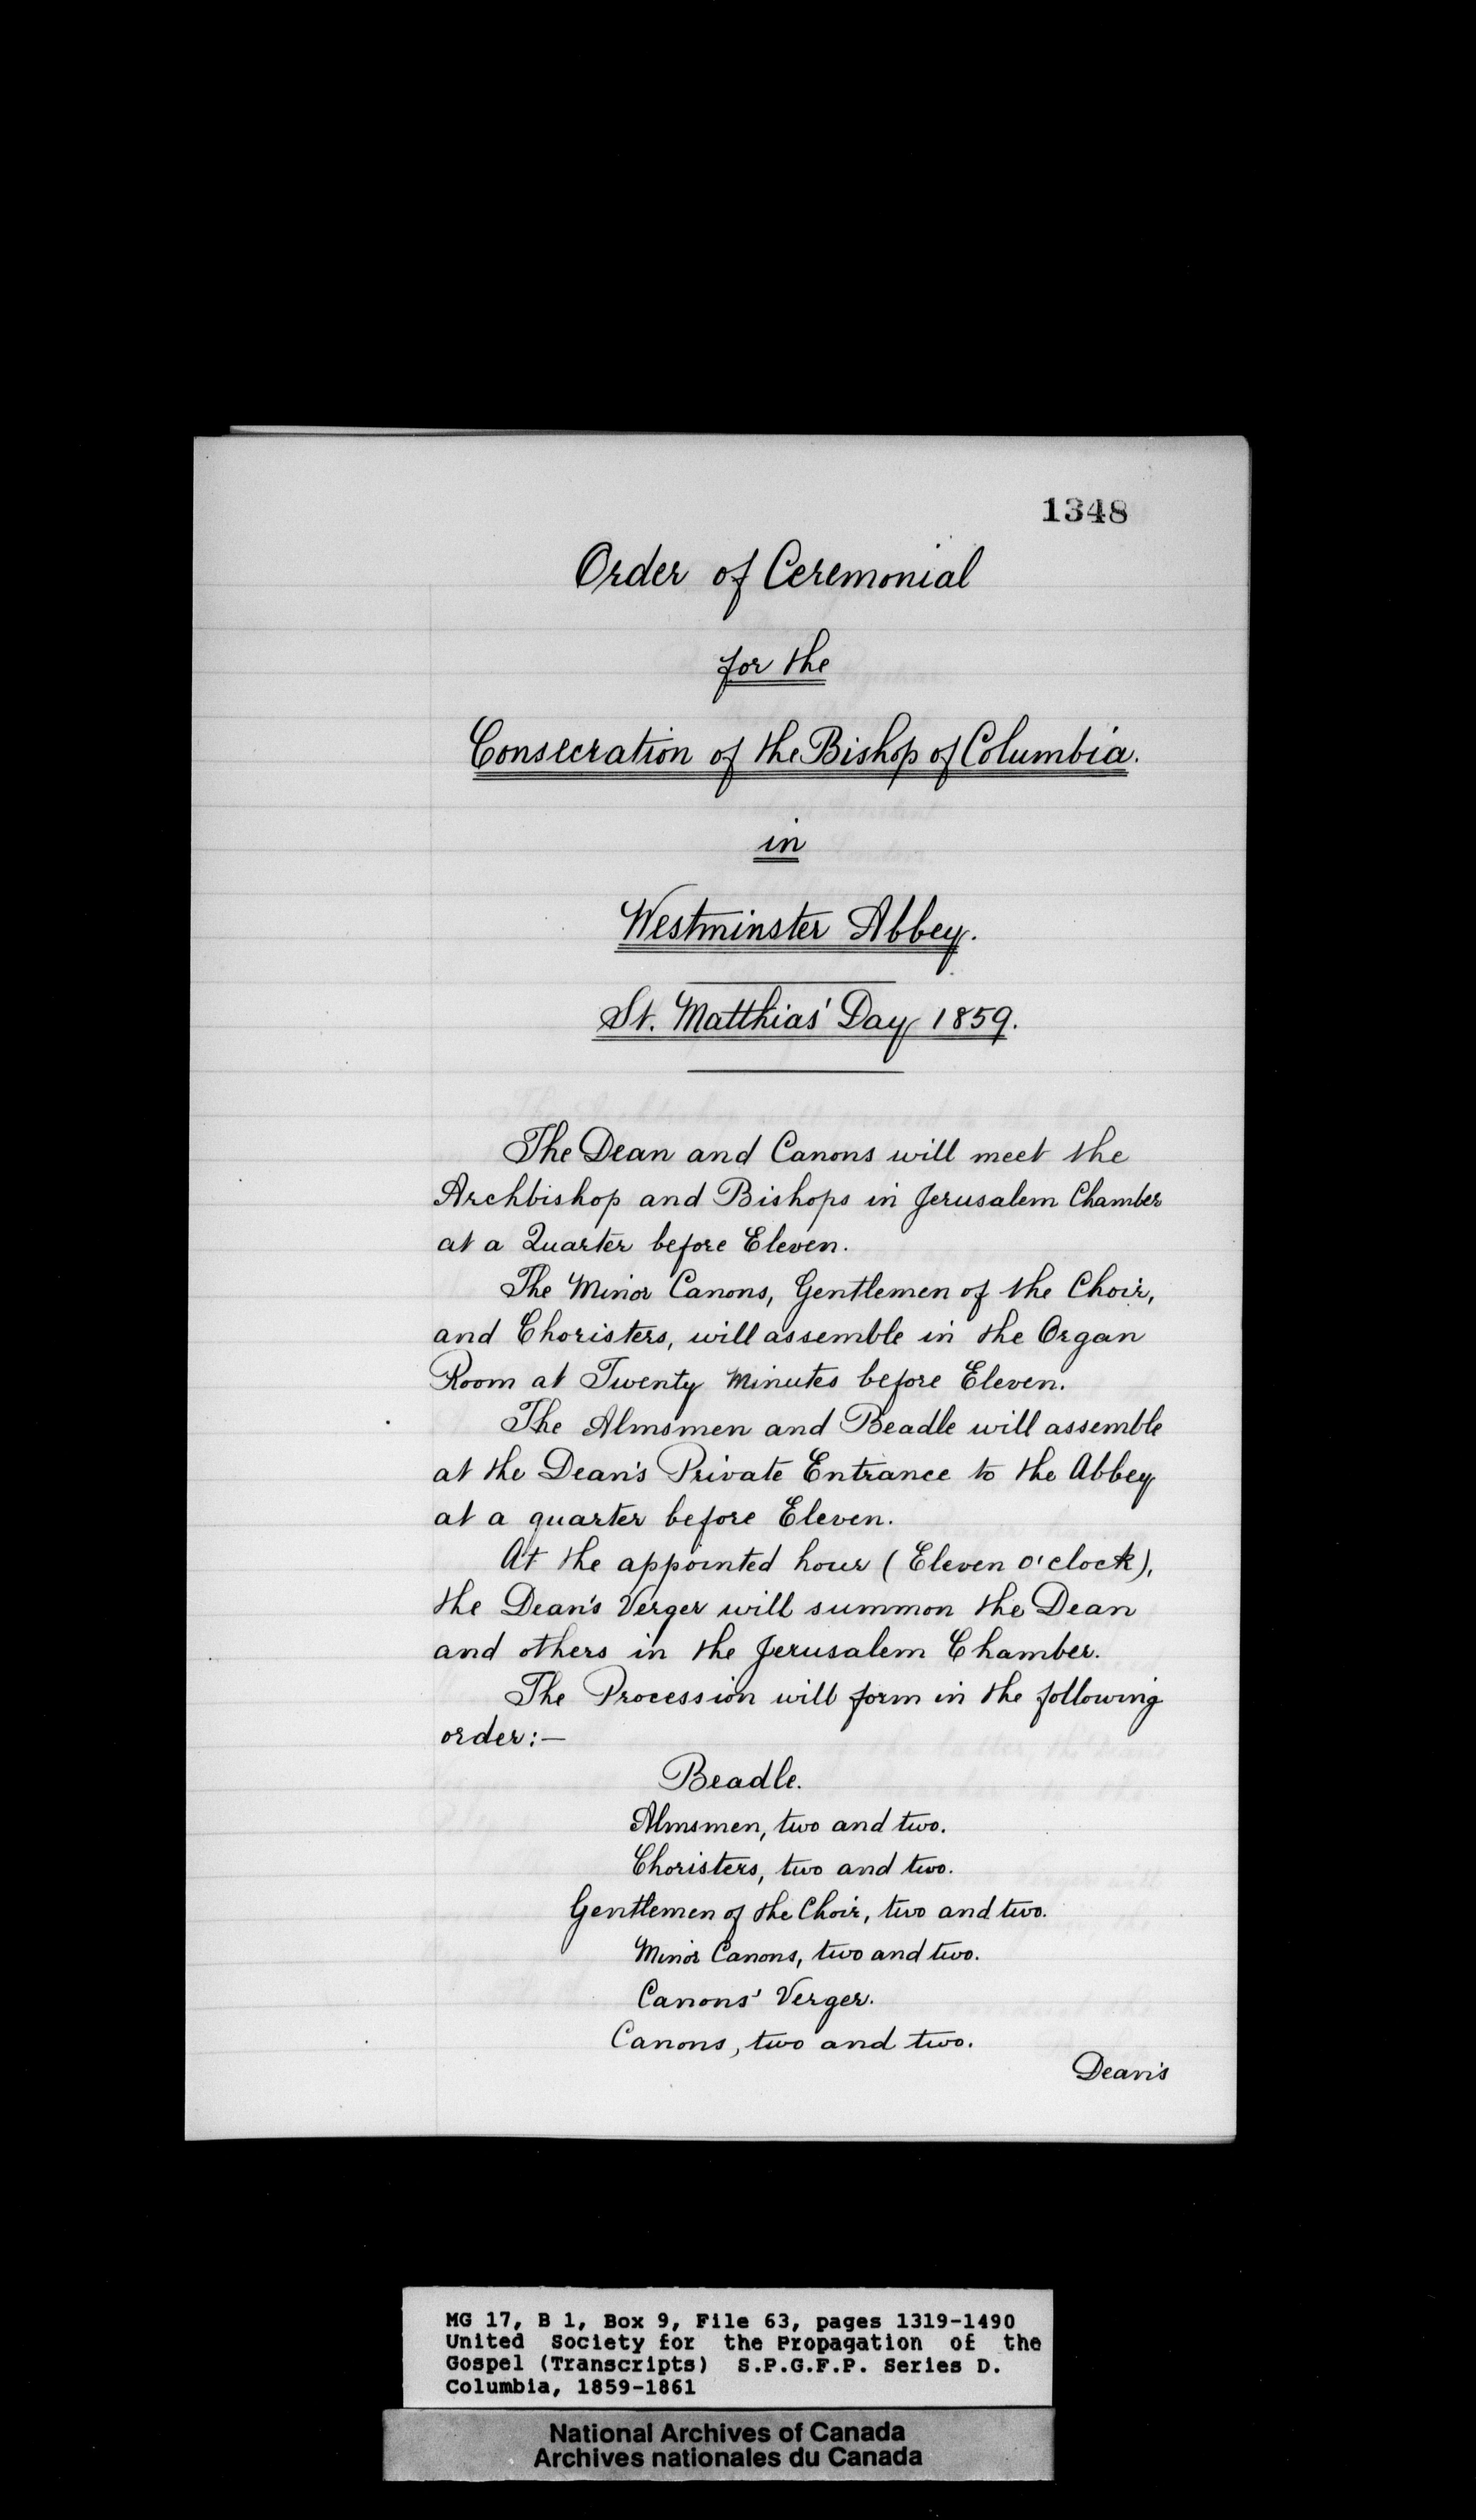 1348
Order of Ceremonial
for the
Consecration of the Bishop of Columbia.
in
Westminster Abbey.
St. Matthias' Day 1859.
The Dean and Canons will meet the
Archbishop and Bishops in Jerusalem Chamber
at a Quarter before Eleven.
The Minor Canons, Gentlemen of the Choir,
and Choristers, will assemble in the Organ
Room at Twenty Minutes before Eleven.
The Almsmen and Beadle will assemble
at the Dean's Private Entrance to the Abbey
at a quarter before Eleven.
At the appointed hour (Eleven o'clock),
the Dean's Verger will summon the Dean
and others in the Jerusalem Chamber.
The Procession will form in the following
order:—
Beadle.
Almsmen, two and two.
Choristers, two and two.
Gentlemen of the Choir, two and two.
Minor Canons, two and two.
Canons' Verger.
Canons, two and two.
Dean's
MG 17, B 1, Box 9, File 63, pages 1319-1490
United Society for the Propagation of the
Gospel (Transcripts) S.P.G.F.P. Series D.
Columbia, 1859-1861
National Archives of Canada
Archives nationales du Canada